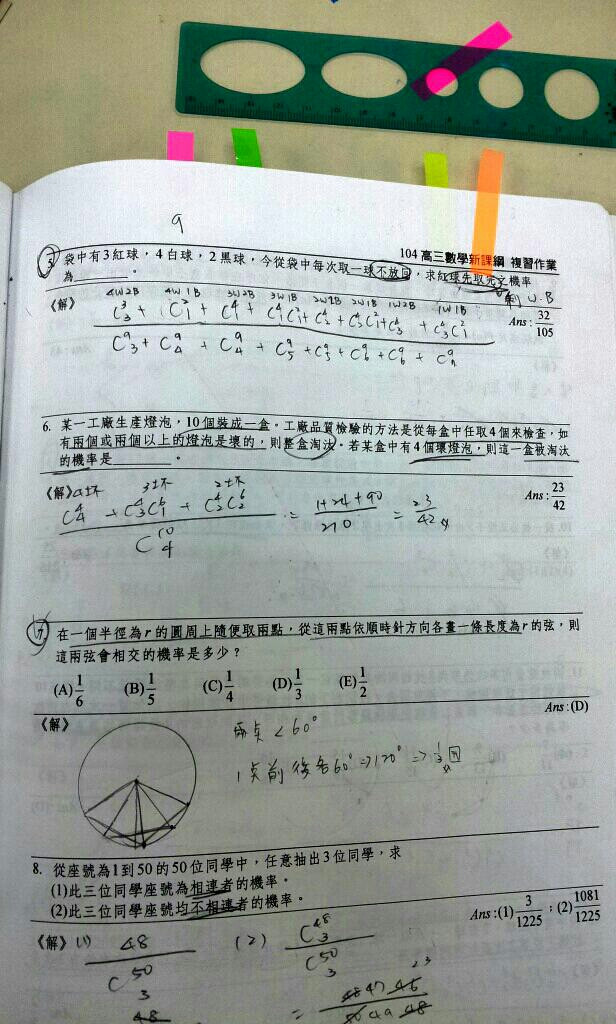 9
104 高三數學新課綱 複習作業
5. 袋中有3紅球，4白球，2黑球，今從袋中每次取一球不放回，求紅球先取完之機率
為________。
《解》
4W2B 4W1B 3W2B 3W1B 2W2B 2W1B 1W2B 1W1B
Ans: 32/105
6. 某一工廠生產燈泡，10個裝成一盒。工廠品質檢驗的方法是從每盒中任取4個來檢查，如
有兩個或兩個以上的燈泡是壞的，則整盒淘汰。若某盒中有4個壞燈泡，則這一盒被淘汰
的機率是________。
《解》 3坏 2坏
Ans: 23/42
(C⁴₄ + C⁴₃C⁶₁ + C⁴₂C⁶₂) / C¹⁰₄ = (1+24+90)/210 = 23/42
7. 在一個半徑為r的圓周上隨便取兩點，從這兩點依順時針方向各畫一條長度為r的弦，則
這兩弦會相交的機率是多少？
(A) 1/6 (B) 1/5 (C) 1/4 (D) 1/3 (E) 1/2
Ans:(D)
《解》
兩点<60°
1点前後各60° ⇒ 120° ⇒ 1/3
8. 從座號為1到50的50位同學中，任意抽出3位同學，求
(1)此三位同學座號為相連者的機率。
(2)此三位同學座號均不相連者的機率。
Ans:(1) 3/1225；(2) 1081/1225
《解》(1) 48/C⁵⁰₃ (2) C⁴⁸₃/C⁵⁰₃
23
= 48 47 46 / 50 49 48
48